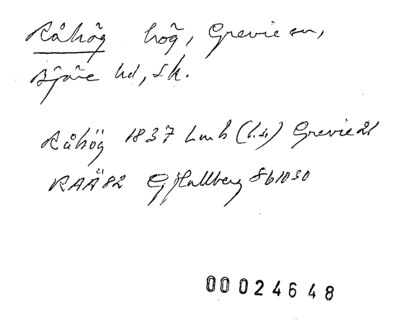 Råhög hög, Grevie sn,
Bjäre hd, Sk.
Råhög 1837 Lmh (l.s.) Grevie 21
RAÄ 82 G Hallberg 861030
00024648